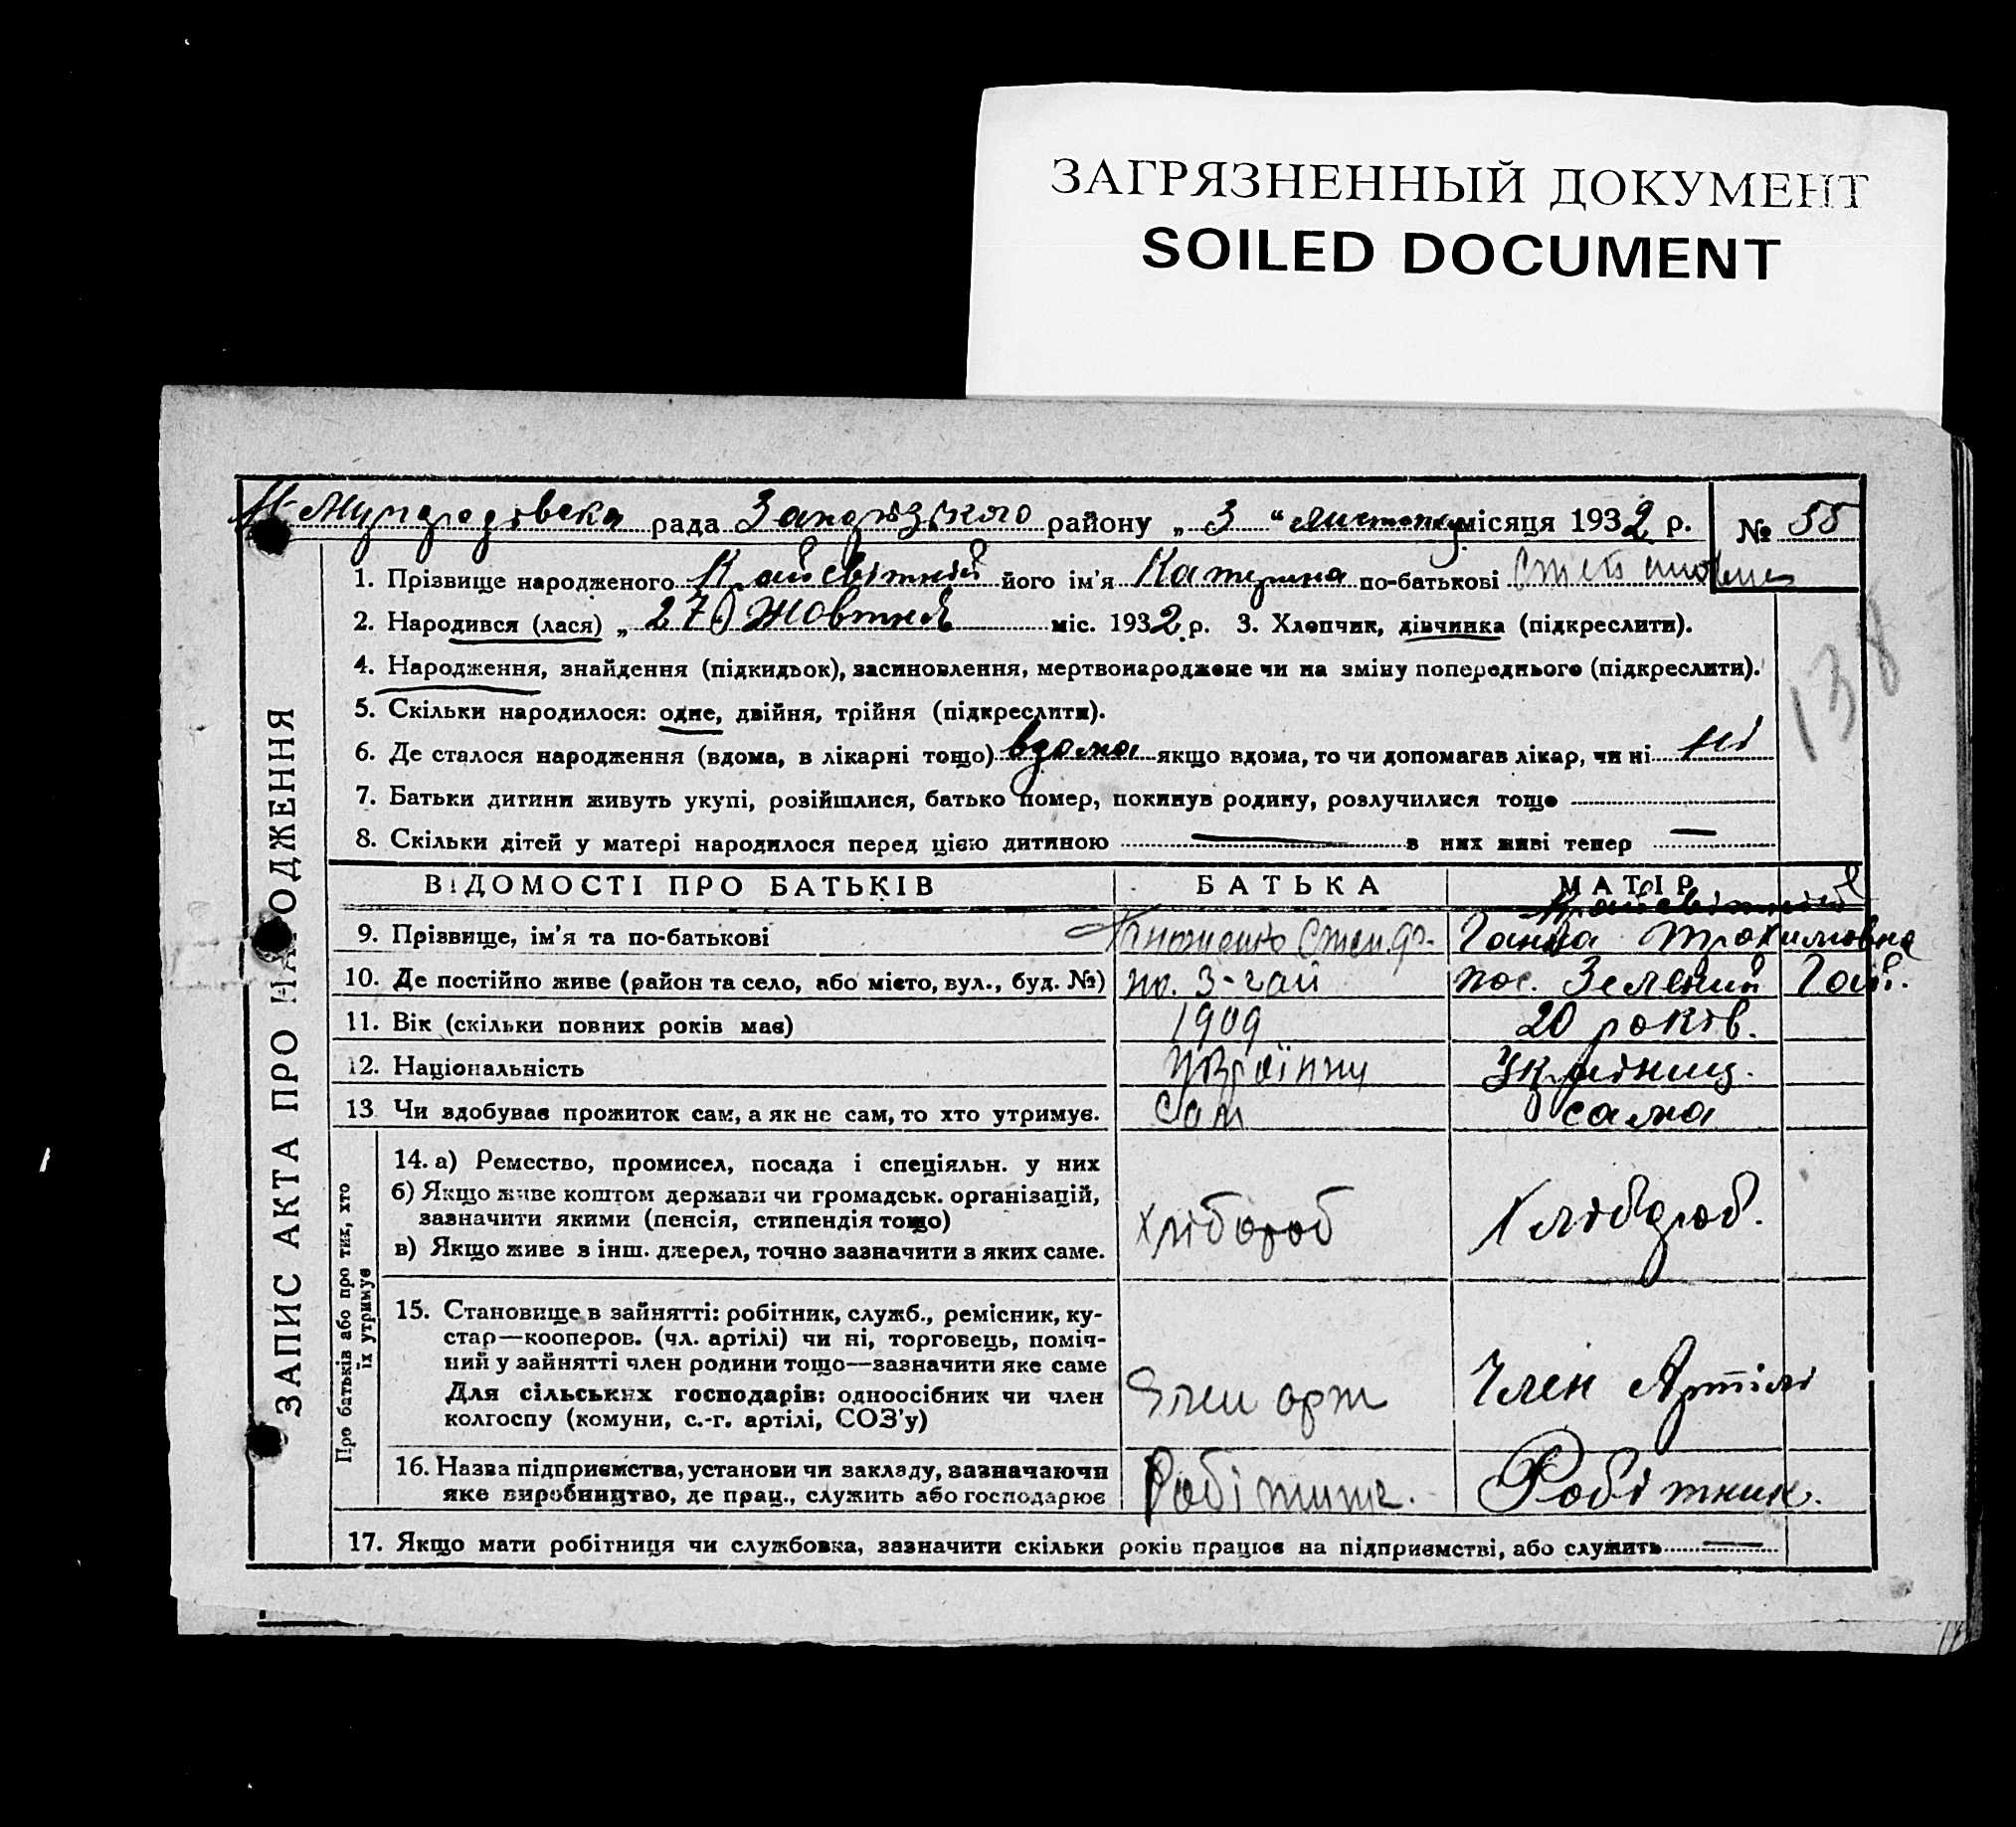 ЗАГРЯЗНЕННЫЙ ДОКУМЕНТ
SOILED DOCUMENT
рада району „ 3 “ місяця 1932 р. № 55
1. Прізвище народженого його ім'я Катерина по-батькові
2. Народився (лася) „ 27 Жовтня міс. 1932 р. 3. Хлопчик, дівчинка (підкреслити).
4. Народження, знайдення (підкидьок), засиновлення, мертвонароджене чи на зміну попереднього (підкреслити).
5. Скільки народилося: одне, двійня, трійня (підкреслити).
6. Де сталося народження (вдома, в лікарні тощо) вдома якщо вдома, то чи допомагав лікар, чи ні ні
7. Батьки дитини живуть укупі, розійшлися, батько помер, покинув родину, розлучилися тоще
8. Скільки дітей у матері народилося перед цією дитиною — в них живі тепер —
138
ЗАПИС АКТА ПРО НАРОДЖЕННЯ
ВІДОМОСТІ ПРО БАТЬКІВ БАТЬКА МАТІР
9. Прізвище, ім'я та по-батькові Ганна Трохимовна
10. Де постійно живе (район та село, або місто, вул., буд. №) по. З-гай пос. Зелений Гай.
11. Вік (скільки повних років має) 1909 20 років.
12. Національність
13. Чи здобуває прожиток сам, а як не сам, то хто утримує. Сам сама
Про батьків або про тих, хто їх утримує
14. а) Ремество, промисел, посада і спеціяльн. у них
б) Якщо живе коштом держави чи громадськ. організацій,
зазначити якими (пенсія, стипендія тощо) хлібороб Хлібороб.
в) Якщо живе з інш. джерел, точно зазначити з яких саме.
15. Становище в зайнятті: робітник, служб., ремісник, ку-
стар—кооперов. (чл. артілі) чи ні, торговець, поміч-
ний у зайнятті член родини тощо—зазначити яке саме
Для сільських господарів: одноосібник чи член Член арт Член Артілі
колгоспу (комуни, с.-г. артілі, СОЗ'у)
16. Назва підприємства, установи чи закладу, зазначаючи
яке виробництво, де прац., служить або господарює Робітник. Робітник.
17. Якщо мати робітниця чи службовка, зазначити скільки років працює на підприємстві, або служить —